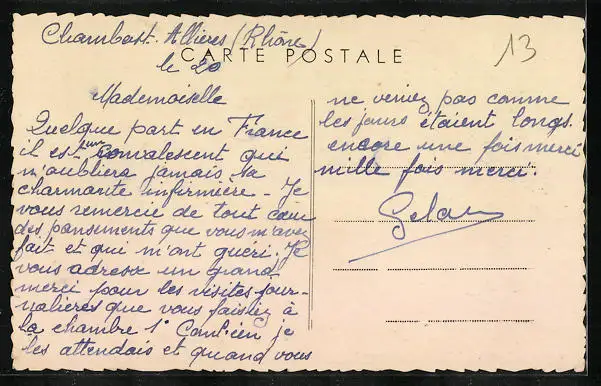 Chambost-Allières (Rhône)
CARTE POSTALE
13
le 20
Mademoiselle
Quelque part en France
il est un convalescent qui
n'oubliera jamais sa
charmante infirmière - Je
vous remercie de tout cœur
des pansements que vous m'avez
fait et qui m'ont guéri. Je
vous adresse un grand
merci pour les visites jour-
nalières que vous faisiez à
la chambre 1° Combien je
les attendais et quand vous
ne veniez pas comme
les jours étaient longs.
encore une fois merci
mille fois merci.